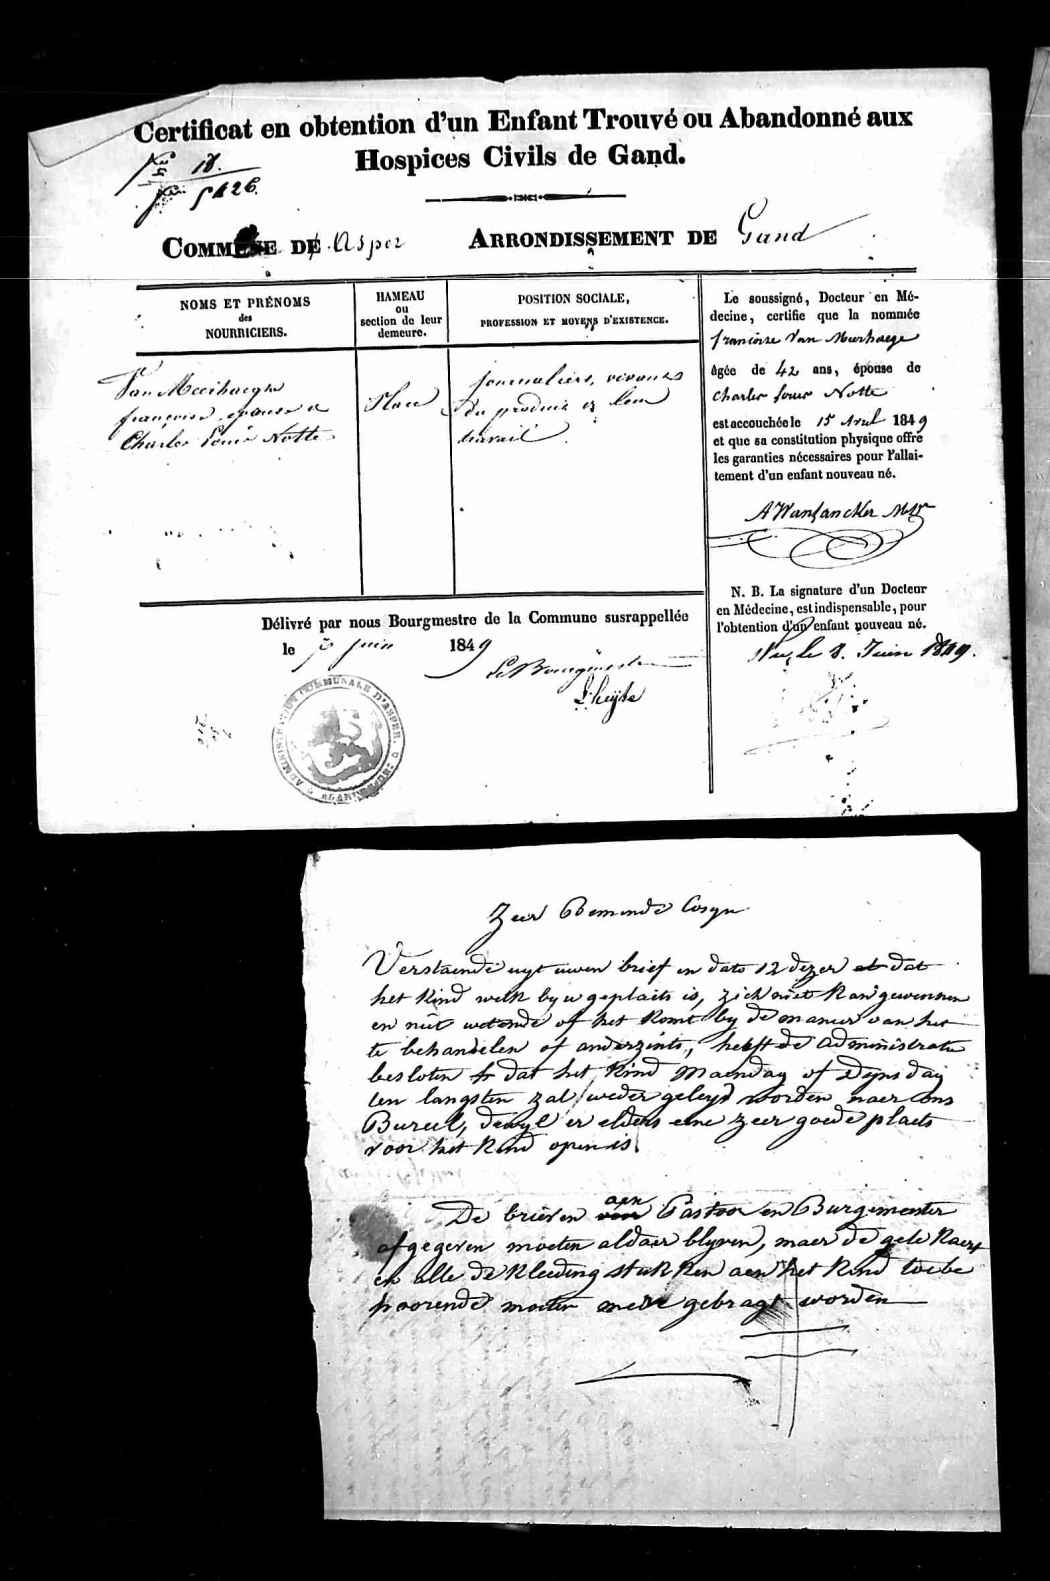 Certificat en obtention d'un Enfant Trouvé ou Abandonné aux
Hospices Civils de Gand.
18.
5426.
COMMUNE DE Asper
ARRONDISSEMENT DE Gand
NOMS ET PRÉNOMS
des
NOURRICIERS.
HAMEAU
ou
section de leur
demeure.
POSITION SOCIALE,
PROFESSION ET MOYENS D'EXISTENCE.
Van Meerhaeghe
françoise epouse de
Charles Louis Notte
Place
journaliers, vivants
du produit de leur
travail.
Le soussigné, Docteur en Mé-
decine, certifie que la nommée
francoise Van Meerhaege
âgée de 42 ans, épouse de
Charles louis Notte
est accouchée le 15 Avril 1849
et que sa constitution physique offre
les garanties nécessaires pour l'allai-
tement d'un enfant nouveau né.
N. B. La signature d'un Docteur
en Médecine, est indispensable, pour
l'obtention d'un enfant nouveau né.
Vu, le 8. Juin 1849.
Délivré par nous Bourgmestre de la Commune susrappellée
le juin 1849
Le Bourgmestre
ADMINISTRATION COMMUNALE D'ASPER.
Zeer Beminde Cosyn
Verstaende uyt uwen brief in dato 12 dezer dat
het kind welk by u geplaets is, zich niet kan gewennen
en niet wetende of het komt by de manier van het
te behandelen of anderzints, heeft de administratie
besloten dat het kind Maendag of Dynsdag
ten langsten zal weder geleyd worden naer ons
Bureel, dewyl er elders eene zeer goede plaets
voor het kind open is.
De brieven aen Pastoor en Burgemeester
afgegeven moeten aldaer blyven, maer de gele Kaert
en alle de kleeding stukken aen het kind toebe
hoorende moeten mede gebragt worden